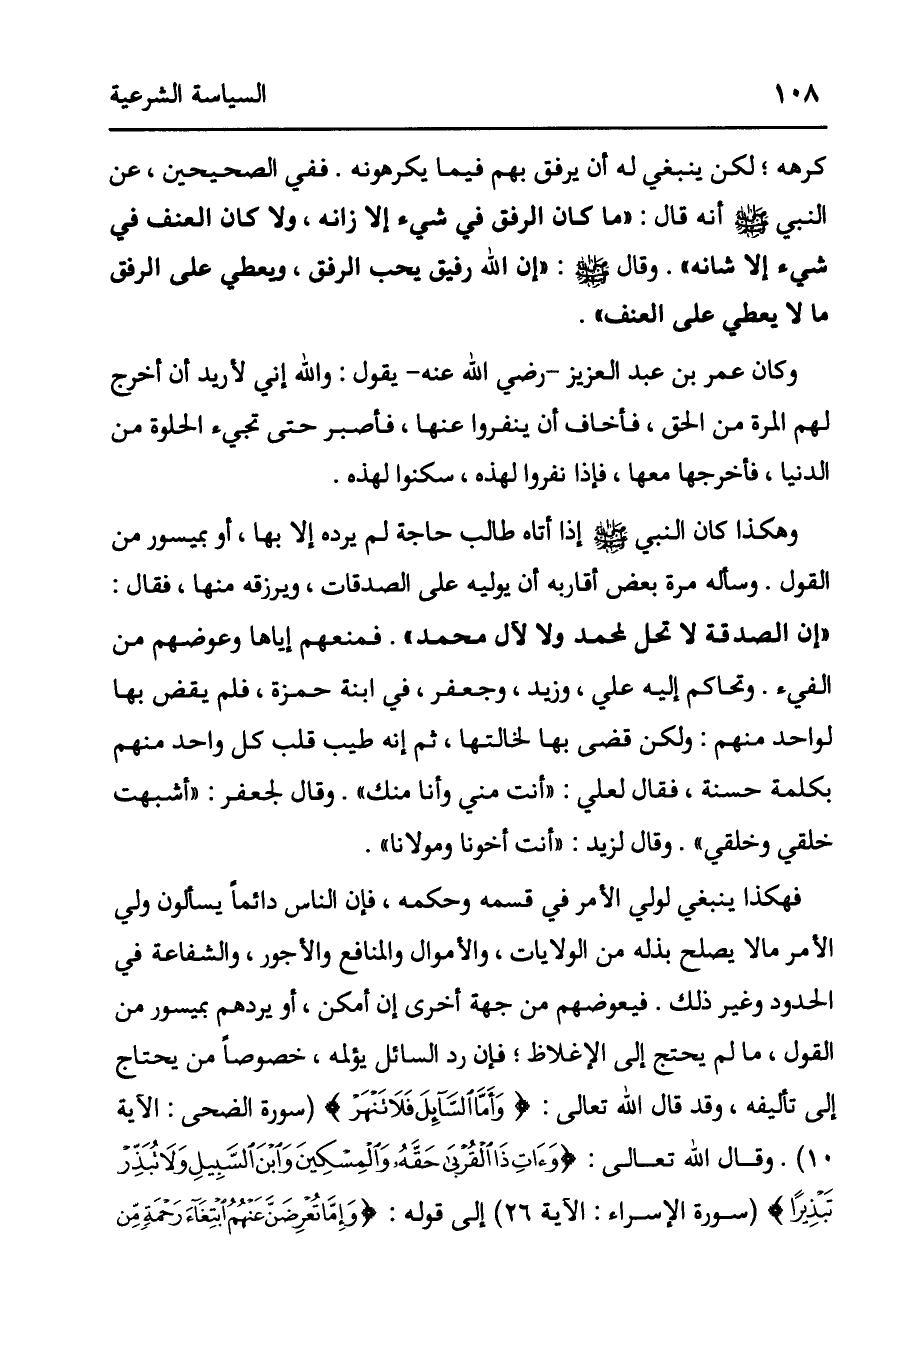 ١٠٨ السياسة الشرعية
كرهه ؛ لكن ينبغي له أن يرفق بهم فيما يكرهونه . ففي الصحيحين ، عن
النبي ﷺ أنه قال : «ما كان الرفق في شيء إلا زانه ، ولا كان العنف في
شيء إلا شانه» . وقال ﷺ : «إن الله رفيق يحب الرفق ، ويعطي على الرفق
ما لا يعطي على العنف» .
وكان عمر بن عبد العزيز -رضي الله عنه- يقول : والله إني لأريد أن أخرج
لهم المرة من الحق ، فأخاف أن ينفروا عنها ، فأصبر حتى تجيء الحلوة من
الدنيا ، فأخرجها معها ، فإذا نفروا لهذه ، سكنوا لهذه .
وهكذا كان النبي ﷺ إذا أتاه طالب حاجة لم يرده إلا بها ، أو بميسور من
القول . وسأله مرة بعض أقاربه أن يوليه على الصدقات ، ويرزقه منها ، فقال :
«إن الصدقة لا تحل لمحمد ولا لآل محمد» . فمنعهم إياها وعوضهم من
الفيء . وتحاكم إليه علي ، وزيد ، وجعفر ، في ابنة حمزة ، فلم يقض بها
لواحد منهم : ولكن قضى بها لخالتها ، ثم إنه طيب قلب كل واحد منهم
بكلمة حسنة ، فقال لعلي : «أنت مني وأنا منك» . وقال لجعفر : «أشبهت
خلقي وخلقي» . وقال لزيد : «أنت أخونا ومولانا» .
فهكذا ينبغي لولي الأمر في قسمه وحكمه ، فإن الناس دائماً يسألون ولي
الأمر مالا يصلح بذله من الولايات ، والأموال والمنافع والأجور ، والشفاعة في
الحدود وغير ذلك . فيعوضهم من جهة أخرى إن أمكن ، أو يردهم بميسور من
القول ، ما لم يحتج إلى الإغلاظ ؛ فإن رد السائل يؤلمه ، خصوصاً من يحتاج
إلى تأليفه ، وقد قال الله تعالى : ﴿ وَأَمَّا ٱلسَّآئِلَ فَلَا تَنْهَرْ ﴾ (سورة الضحى : الآية
١٠) . وقـال الله تعـالـى : ﴿وَءَاتِ ذَا ٱلْقُرْبَىٰ حَقَّهُۥ وَٱلْمِسْكِينَ وَٱبْنَ ٱلسَّبِيلِ وَلَا تُبَذِّرْ
تَبْذِيرًا ﴾ (سورة الإسراء : الآية ٢٦) إلى قوله : ﴿وَإِمَّا تُعْرِضَنَّ عَنْهُمُ ٱبْتِغَآءَ رَحْمَةٍ مِّن